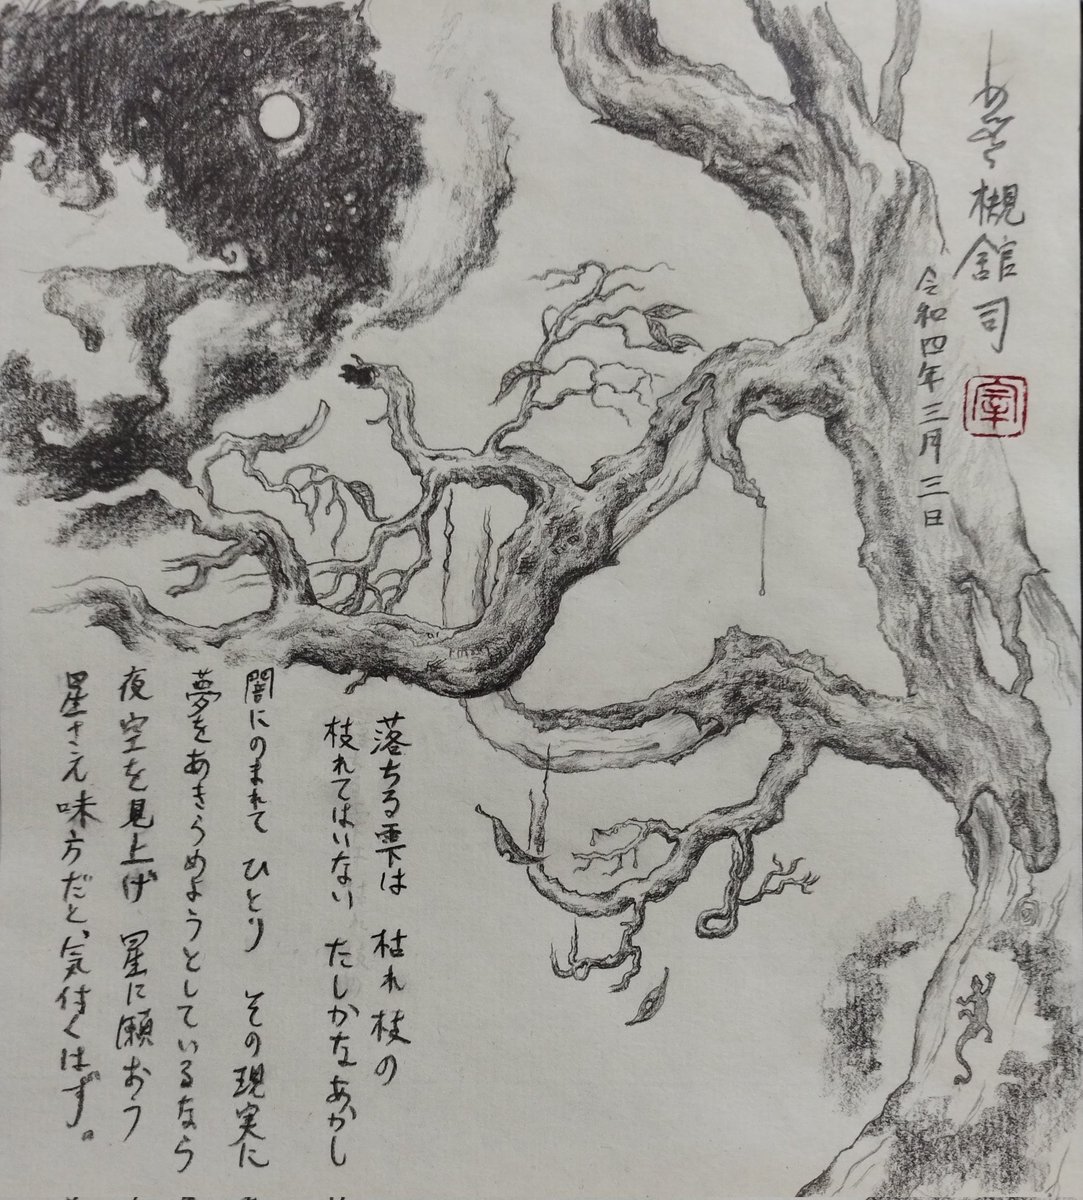 槻館司
令和四年三月三日
落ちる雫は 枯れ枝の
枝れてはいない たしかなあかし
闇にのまれて ひとり その現実に
夢をあきらめようとしているなら
夜空を見上げ 星に願おう
星さえ味方だと、気付くはず。